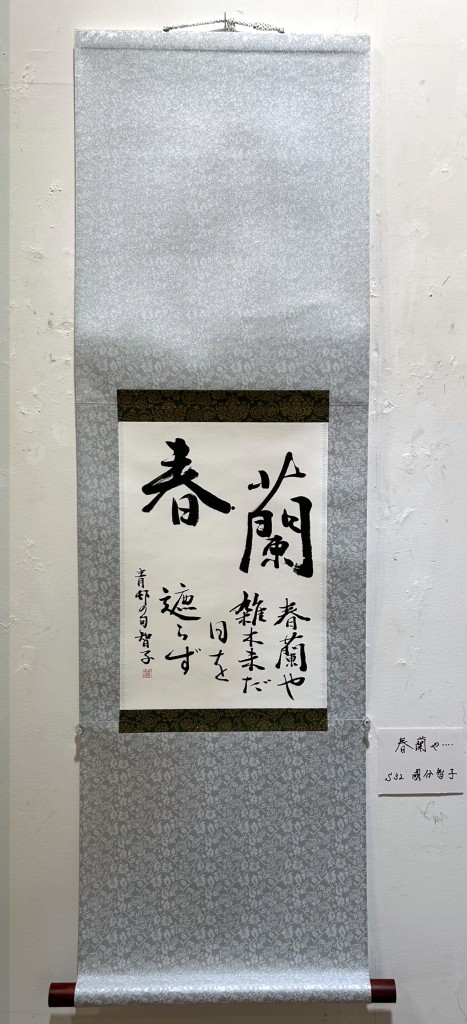 蘭
春
春蘭や
雑木未だ
日を
遮らず
青邨の句 智子
春蘭や‥‥
532 國分智子